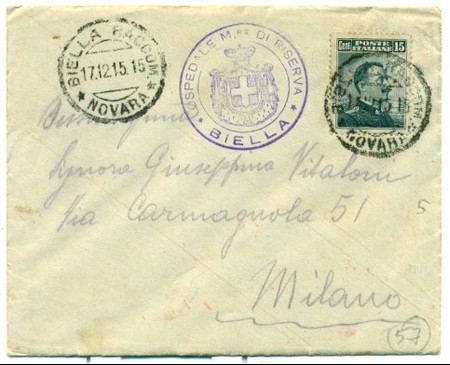 BIELLA RACCOM.
17.12.15.15
★ NOVARA ★
OSPEDALE M.RE DI RISERVA
★ BIELLA ★
Cent. POSTE ITALIANE 15
NOVARA
Signora Giuseppina Vitaloni
Via Carmagnola 51
5
Milano
57